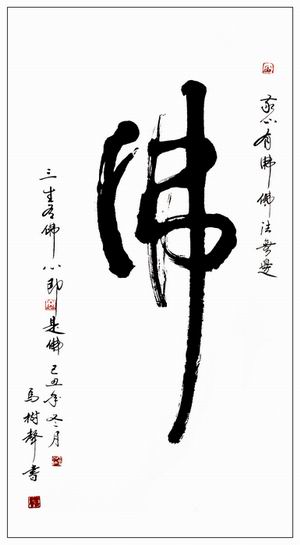 佛
心有佛佛法無邊
三生有佛心即是佛己丑年冬月
馬樹聲書